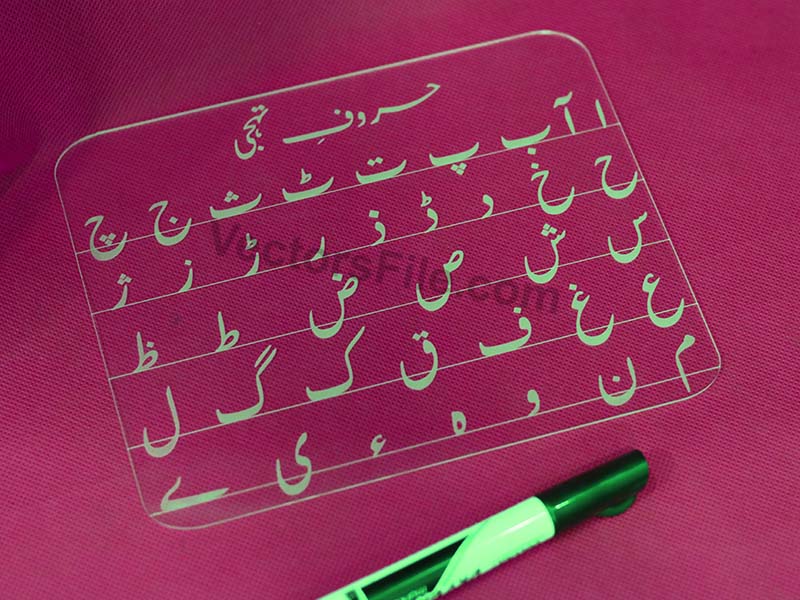 حروفِ تہجی
ا آ ب پ ت ٹ ث ج چ
ح خ د ڈ ذ ر ڑ ز ژ
س ش ص ض ط ظ
ع غ ف ق ک گ ل
م ن و ہ ء ی ے
VectorsFile.com